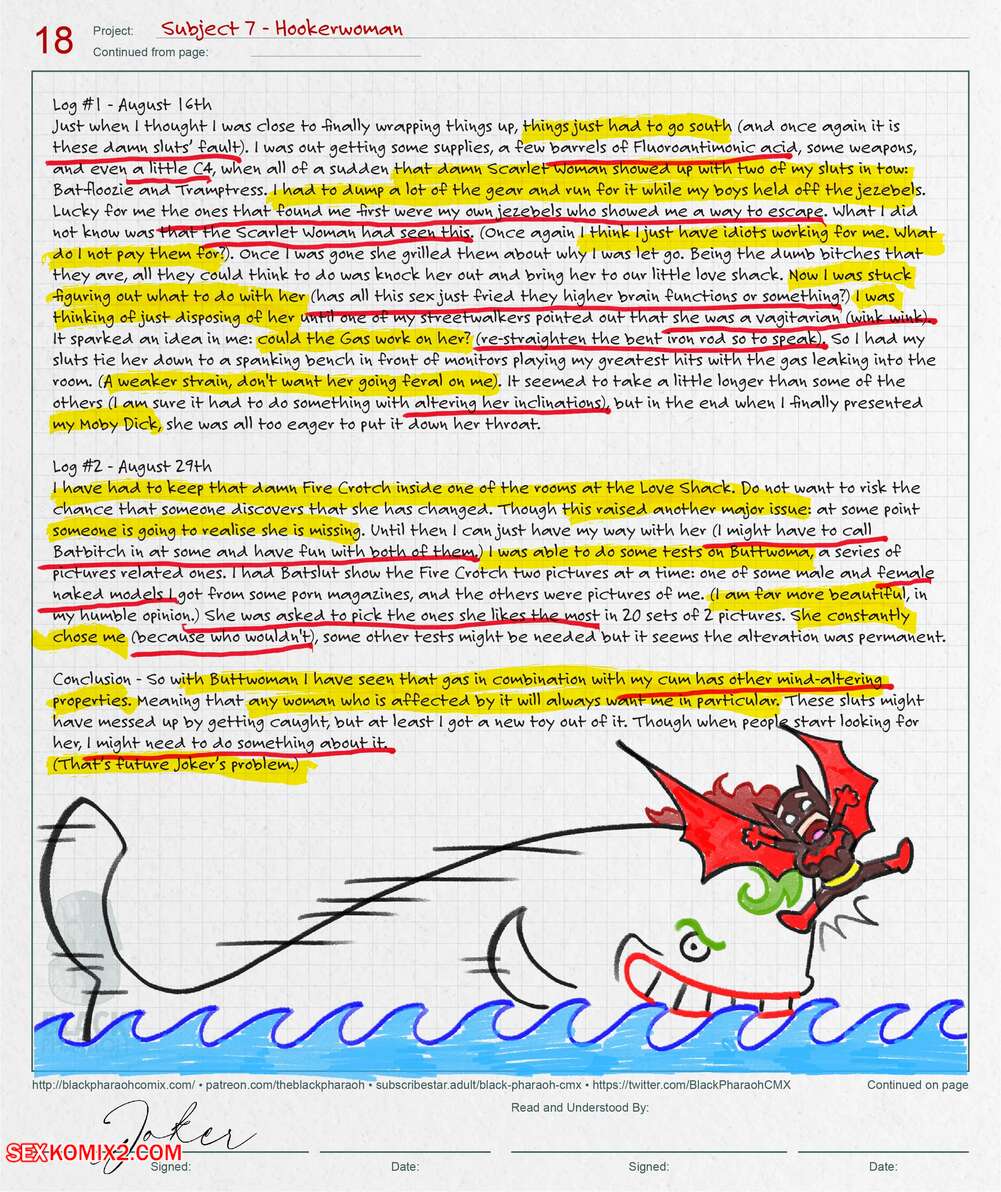 18
Project: Subject 7 - Hookerwoman
Continued from page:
Log #1 - August 16th
Just when I thought I was close to finally wrapping things up, things just had to go south (and once again it is
these damn sluts' fault). I was out getting some supplies, a few barrels of Fluoroantimonic acid, some weapons,
and even a little C4, when all of a sudden that damn Scarlet Woman showed up with two of my sluts in tow:
Batfloozie and Tramptress. I had to dump a lot of the gear and run for it while my boys held off the jezebels.
Lucky for me the ones that found me first were my own jezebels who showed me a way to escape. What I did
not know was that the Scarlet Woman had seen this. (Once again I think I just have idiots working for me. What
do I not pay them for?). Once I was gone she grilled them about why I was let go. Being the dumb bitches that
they are, all they could think to do was knock her out and bring her to our little love shack. Now I was stuck
figuring out what to do with her (has all this sex just fried they higher brain functions or something?) I was
thinking of just disposing of her until one of my streetwalkers pointed out that she was a vagitarian (wink wink).
It sparked an idea in me: could the Gas work on her? (re-straighten the bent iron rod so to speak). So I had my
sluts tie her down to a spanking bench in front of monitors playing my greatest hits with the gas leaking into the
room. (A weaker strain, don't want her going feral on me). It seemed to take a little longer than some of the
others (I am sure it had to do something with altering her inclinations), but in the end when I finally presented
my Moby Dick, she was all too eager to put it down her throat.
Log #2 - August 29th
I have had to keep that damn Fire Crotch inside one of the rooms at the Love Shack. Do not want to risk the
chance that someone discovers that she has changed. Though this raised another major issue: at some point
someone is going to realise she is missing. Until then I can just have my way with her (I might have to call
Batbitch in at some and have fun with both of them.) I was able to do some tests on Buttwoma, a series of
pictures related ones. I had Batslut show the Fire Crotch two pictures at a time: one of some male and female
naked models I got from some porn magazines, and the others were pictures of me. (I am far more beautiful, in
my humble opinion.) She was asked to pick the ones she likes the most in 20 sets of 2 pictures. She constantly
chose me (because who wouldn't), some other tests might be needed but it seems the alteration was permanent.
Conclusion - So with Buttwoman I have seen that gas in combination with my cum has other mind-altering
properties. Meaning that any woman who is affected by it will always want me in particular. These sluts might
have messed up by getting caught, but at least I got a new toy out of it. Though when people start looking for
her, I might need to do something about it.
(That's future Joker's problem.)
http://blackpharaohcomix.com/ • patreon.com/theblackpharaoh • subscribestar.adult/black-pharaoh-cmx • https://twitter.com/BlackPharaohCMX
Continued on page
Read and Understood By:
Joker
SEXKOMIX2.COM
Signed: Date: Signed: Date: